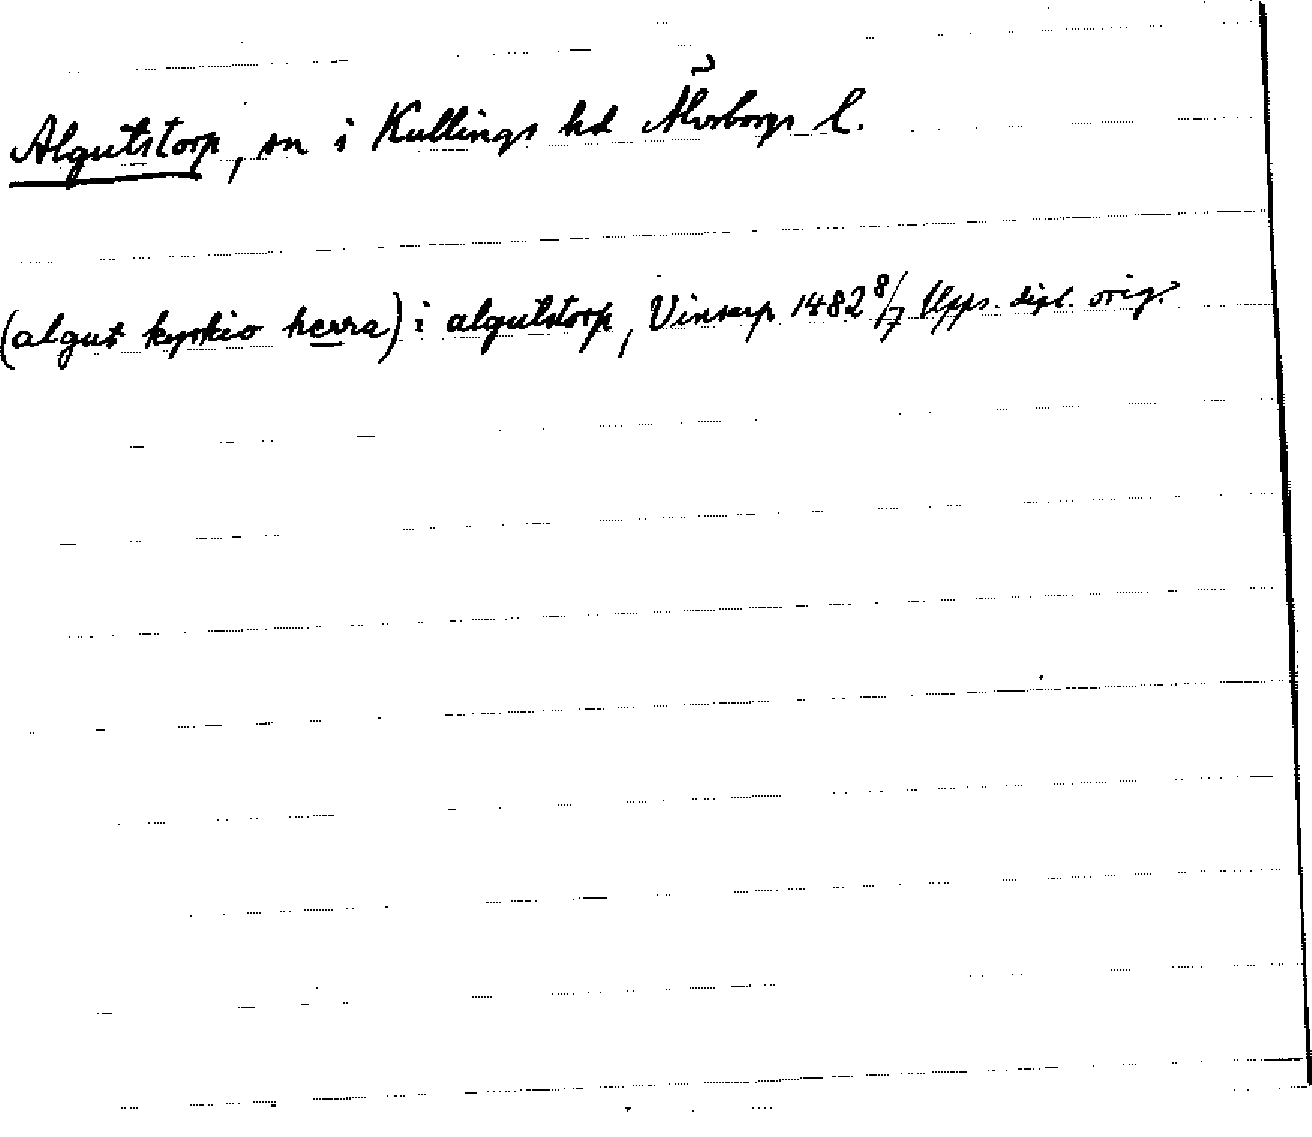 Algutstorp, sn i Kullings hd Älvsborgs l.
(algut kyrkio herra) i algutstorp, Vinkarp 1482 8/7 Upps. dipl. orig.